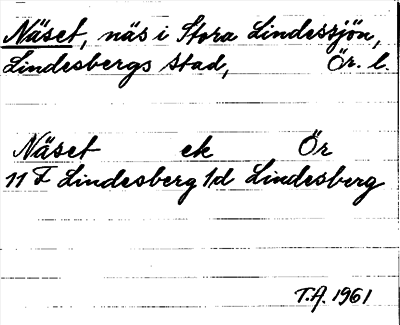 Näset, näs i Stora Lindessjön,
Lindesbergs stad, Ör. l.
Näset ek Ör
11 F Lindesberg 1/d Lindesberg
T.A. 1961